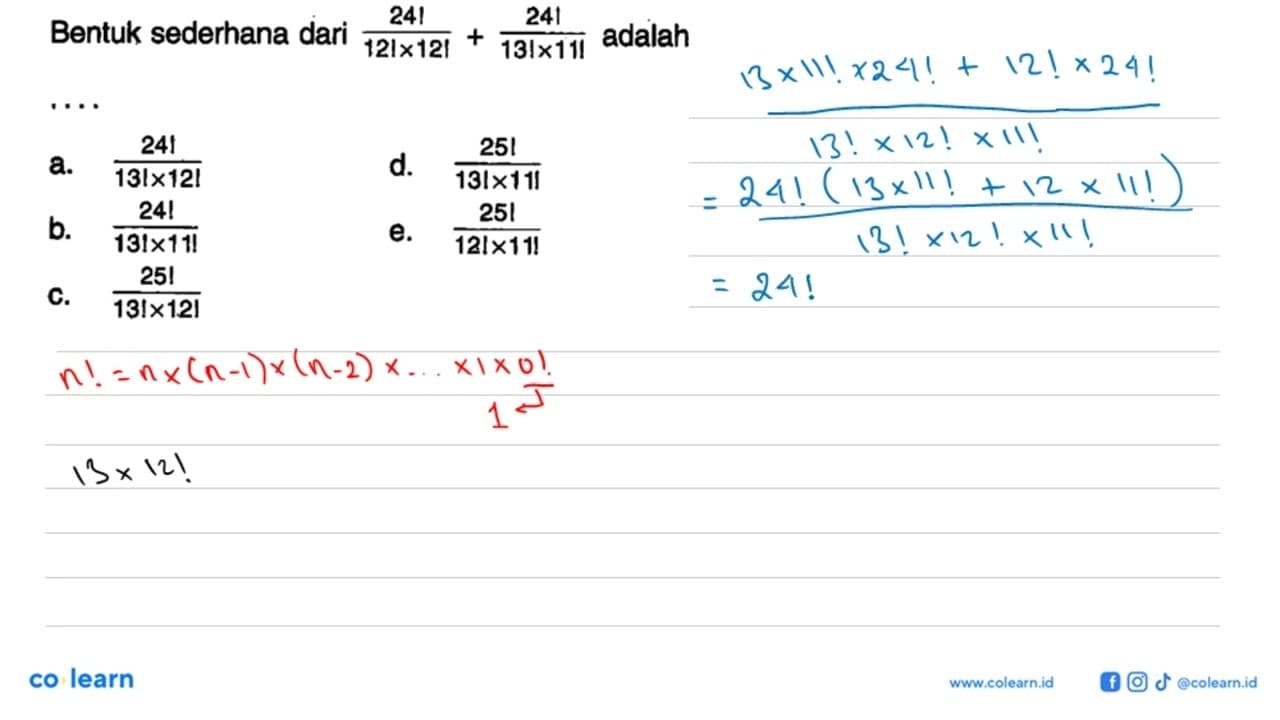 Bentuk sederhana dari 24!/(12!×12!) + 24!/(13!×11!) adalah
....
a. 24!/(13!×12!)
b. 24!/(13!×11!)
c. 25!/(13!×12!)
d. 25!/(13!×11!)
e. 25!/(12!×11!)
13×11!×24! + 12!×24!
13! × 12! × 11!
= 24! (13×11! + 12 × 11!)
13! × 12! × 11!
= 24!
n! = n×(n-1)×(n-2)×... ×1×0!
1
13×12!
co learn
www.colearn.id
@colearn.id